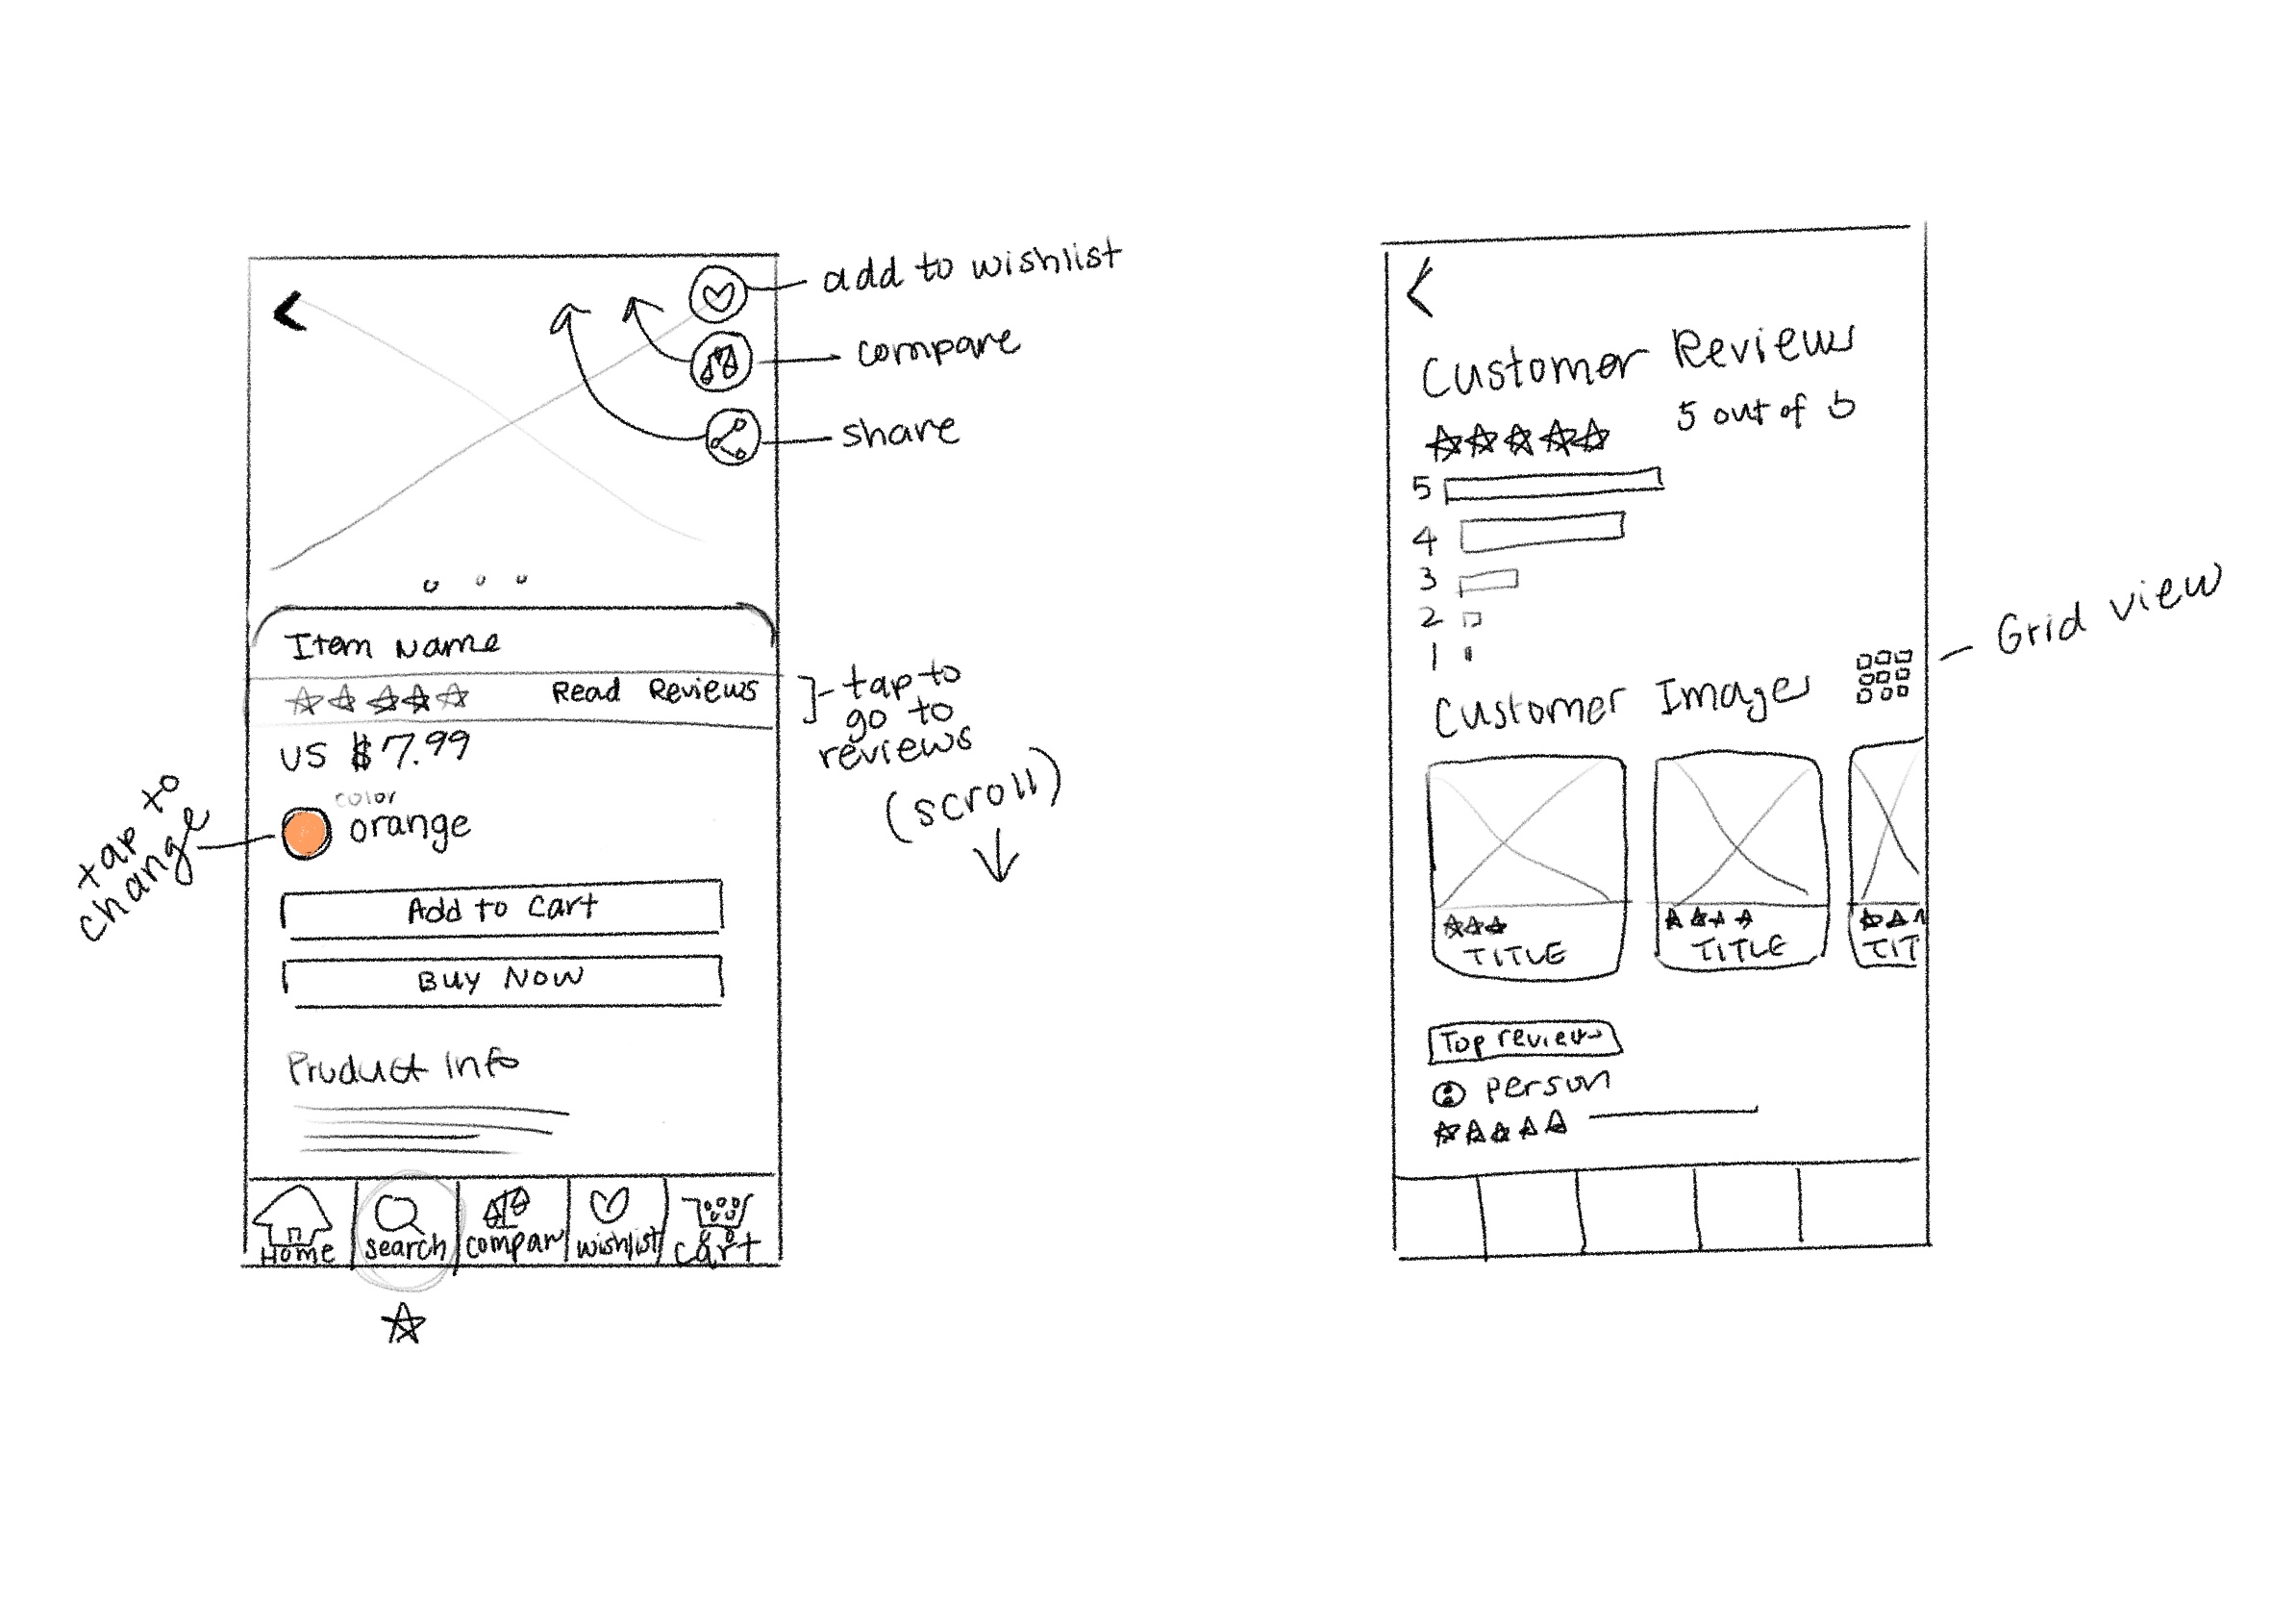 add to wishlist
compare
share
Item Name
Read Reviews
tap to
go to
reviews
(scroll)
US $7.99
color
orange
tap to
change
Add to Cart
Buy Now
Product Info
Home
search
compar
wishlist
cart
Customer Reviews
5 out of 5
5
4
3
2
1
Customer Images
Grid view
TITLE
TITLE
TIT
Top reviews
person